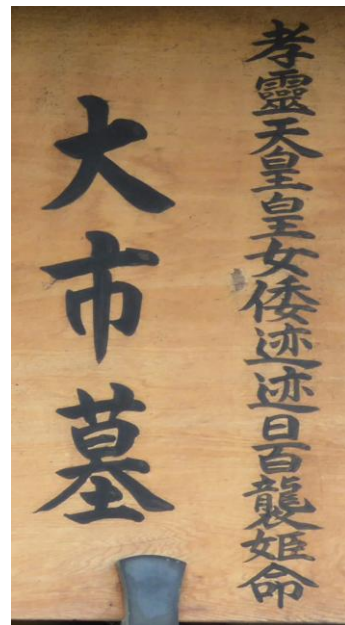 孝靈天皇皇女倭迹迹日百襲姫命
大市墓